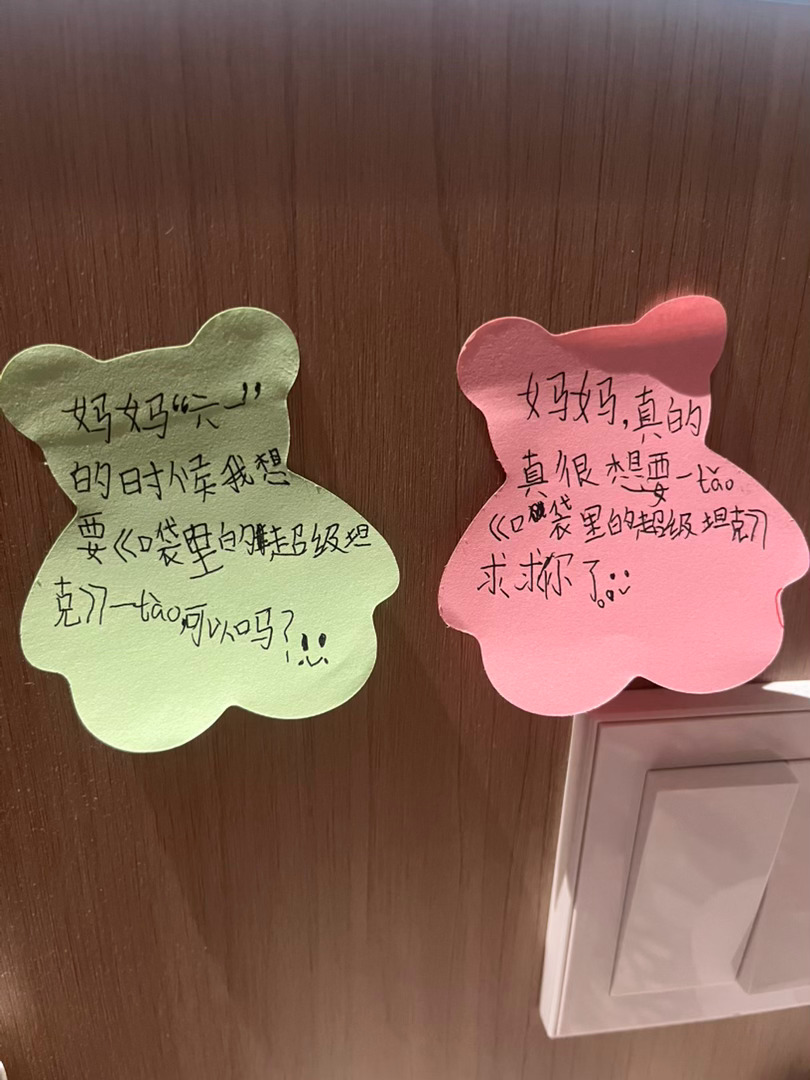 妈妈“六一”
的时候我想
要《口袋里的超级坦
克》一tào,可以吗?
妈妈,真的
真很想要一tǎo
《口袋里的超级坦克》
求求你了。